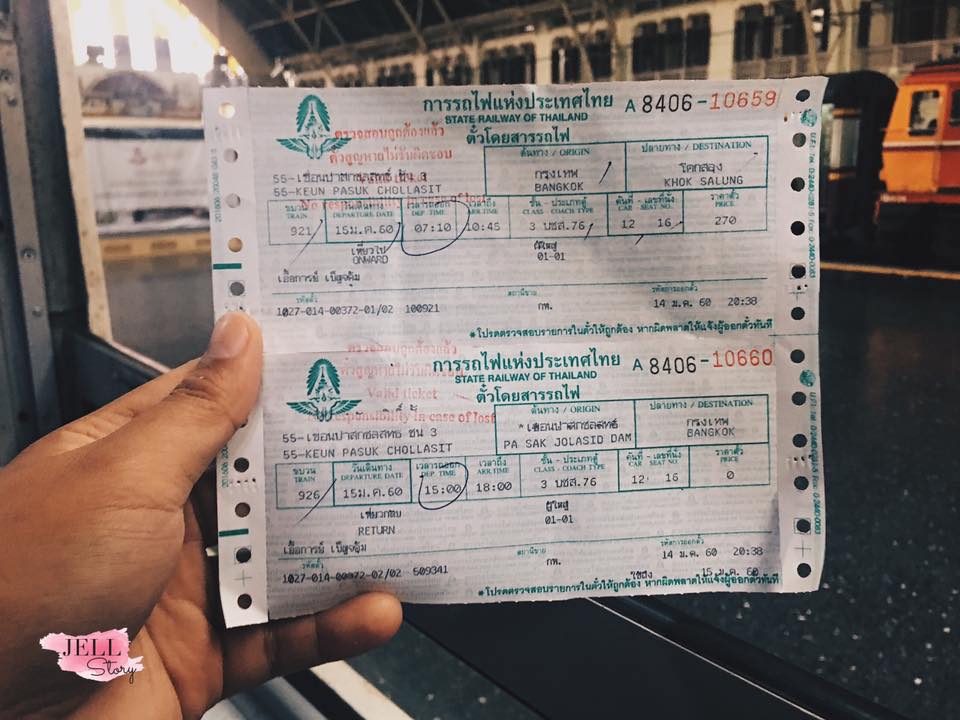 การรถไฟแห่งประเทศไทย A 8406-10659
STATE RAILWAY OF THAILAND
ตั๋วโดยสารรถไฟ
ตรวจสอบถูกต้องแล้ว
ถ้าสูญหายไม่รับผิดชอบ
ต้นทาง / ORIGIN ปลายทาง / DESTINATION
55-เขื่อนป่าสักชลสิทธิ์ ชั้น 3 กรุงเทพ โคกสลุง
55-KEUN PASUK CHOLLASIT BANGKOK KHOK SALUNG
ขบวน วันเดินทาง เวลารถออก เวลาถึง ชั้น - ประเภทตู้ คันที่ - เลขที่นั่ง ราคาตั๋ว
TRAIN DEPARTURE DATE DEP. TIME ARR.TIME CLASS - COACH TYPE CAR SEAT NO. PRICE
921 15ม.ค.60 07:10 10:45 3 บชส.76 12 16 270
เที่ยวไป ผู้ใหญ่
ONWARD 01-01
เอื้อการย์ เบ็ญจคุ้ม
รหัสตั๋ว สถานีขาย รหัสการออกตั๋ว
1027-014-00372-01/02 100921 กพ. 14 ม.ค. 60 20:38
*โปรดตรวจสอบรายการในตั๋วให้ถูกต้อง หากผิดพลาดให้แจ้งผู้ออกตั๋วทันที
การรถไฟแห่งประเทศไทย A 8406-10660
STATE RAILWAY OF THAILAND
ตั๋วโดยสารรถไฟ
ตรวจสอบถูกต้องแล้ว
ถ้าสูญหายไม่รับผิดชอบ
Valid ticket
responsibility in case of lost
ต้นทาง / ORIGIN ปลายทาง / DESTINATION
55-เขื่อนป่าสักชลสิทธิ์ ชั้น 3 *เขื่อนป่าสักชลสิทธิ์ กรุงเทพ
55-KEUN PASUK CHOLLASIT PA SAK JOLASID DAM BANGKOK
ขบวน วันเดินทาง เวลารถออก เวลาถึง ชั้น - ประเภทตู้ คันที่ - เลขที่นั่ง ราคาตั๋ว
TRAIN DEPARTURE DATE DEP. TIME ARR.TIME CLASS - COACH TYPE CAR SEAT NO. PRICE
926 15ม.ค.60 15:00 18:00 3 บชส.76 12 16 0
เที่ยวกลับ ผู้ใหญ่
RETURN 01-01
เอื้อการย์ เบ็ญจคุ้ม
รหัสตั๋ว สถานีขาย รหัสการออกตั๋ว
1027-014-00372-02/02 509341 กพ. 14 ม.ค. 60 20:38
ใช้ถึง 15 ม.ค. 60
*โปรดตรวจสอบรายการในตั๋วให้ถูกต้อง หากผิดพลาดให้แจ้งผู้ออกตั๋วทันที
JELL
Story